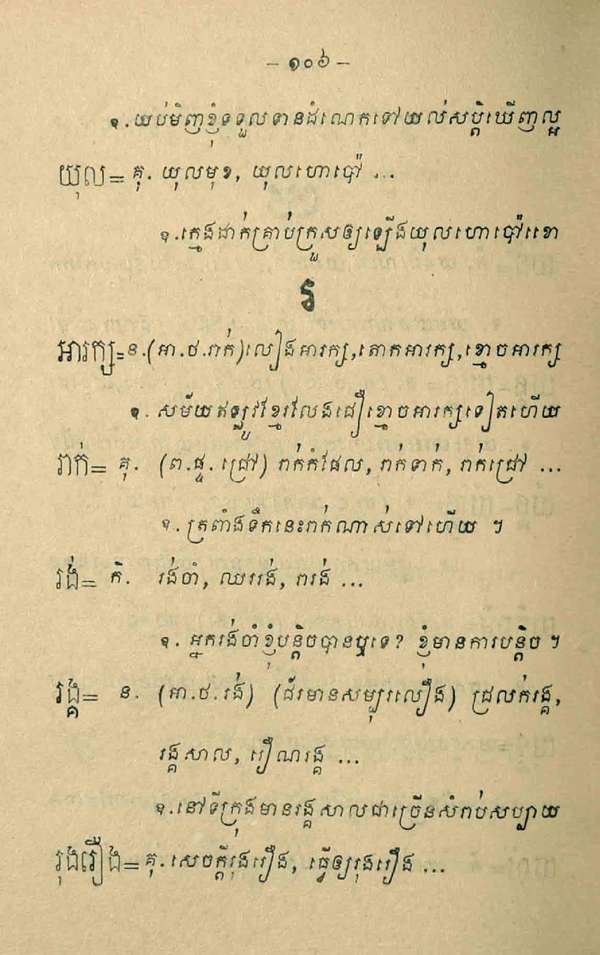 - ១០៦ -
ឧ. យប់មិញខ្ញុំទទួលទានដំណេកទៅយល់សប្តិឃើញល្អ
យុល = គុ. យុលមុខ, យុលហោប៉ៅ ...
ឧ. ក្មេងដាក់គ្រាប់គ្រួសឲ្យឡើងយុលហោប៉ៅខោ
រ
អារក្ស = ន. (អា.ថ.រាក់) លៀងអារក្ស, តោកអារក្ស, ខ្មោចអារក្ស
ឧ. សម័យឥឡូវខ្មែរលែងជឿខ្មោចអារក្សទៀតហើយ
រាក់ = គុ. (ព.ផ្ទ.ជ្រៅ) រាក់កំផែល, រាក់ទាក់, រាក់ជ្រៅ ...
ឧ. ត្រពាំងទឹកនេះរាក់ណាស់ទៅហើយ ។
រង់ = កិ. រង់ចាំ, ឈររង់, រារង់ ...
ឧ. អ្នករង់ចាំខ្ញុំបន្តិចបានឬទេ? ខ្ញុំមានការបន្តិច ។
រង្គ = ន. (អា.ថ.រង់) (ជ័រមានសម្បុរលឿង) ជ្រលក់រង្គ,
រង្គសាល, រឿណរង្គ ...
ឧ. នៅទីក្រុងមានរង្គសាលជាច្រើនសំរាប់សប្បាយ
រុងរឿង = គុ. សេចក្តីរុងរឿង, ធ្វើឲ្យរុងរឿង ...